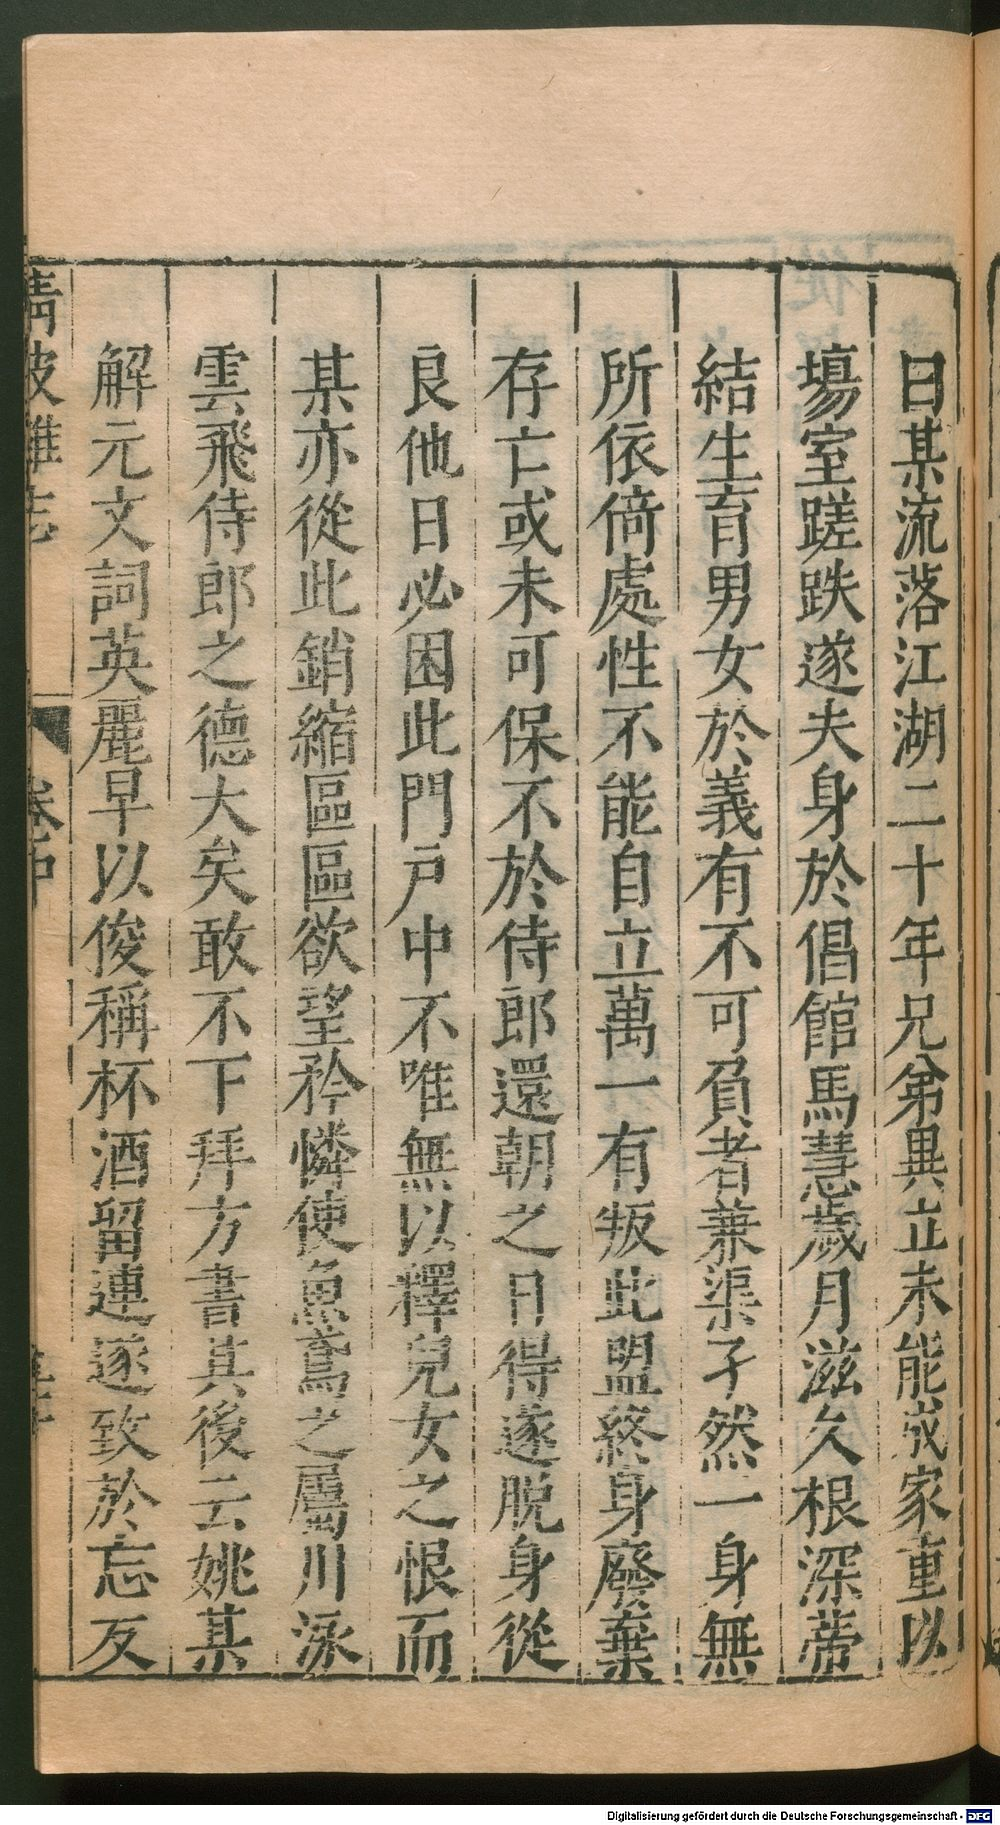 曰某流落江湖二十年兄弟異立未能成家重以
場室蹉跌遂夫身於倡館馬慧歲月滋久根深蒂
結生育男女於義有不可負者兼渠孑然一身無
所依倚處性不能自立萬一有叛此盟終身廢棄
存亡或未可保不於侍郎還朝之日得遂脫身從
良他日必困此門戶中不唯無以釋兒女之恨而
某亦從此銷縮區區欲望矜憐使魚鳶之屬川泳
雲飛侍郎之德大矣敢不下拜方書其後云姚某
解元文詞英麗早以俊稱杯酒留連遂致於忘反
清波雜志 卷中
Digitalisierung gefördert durch die Deutsche Forschungsgemeinschaft - DFG